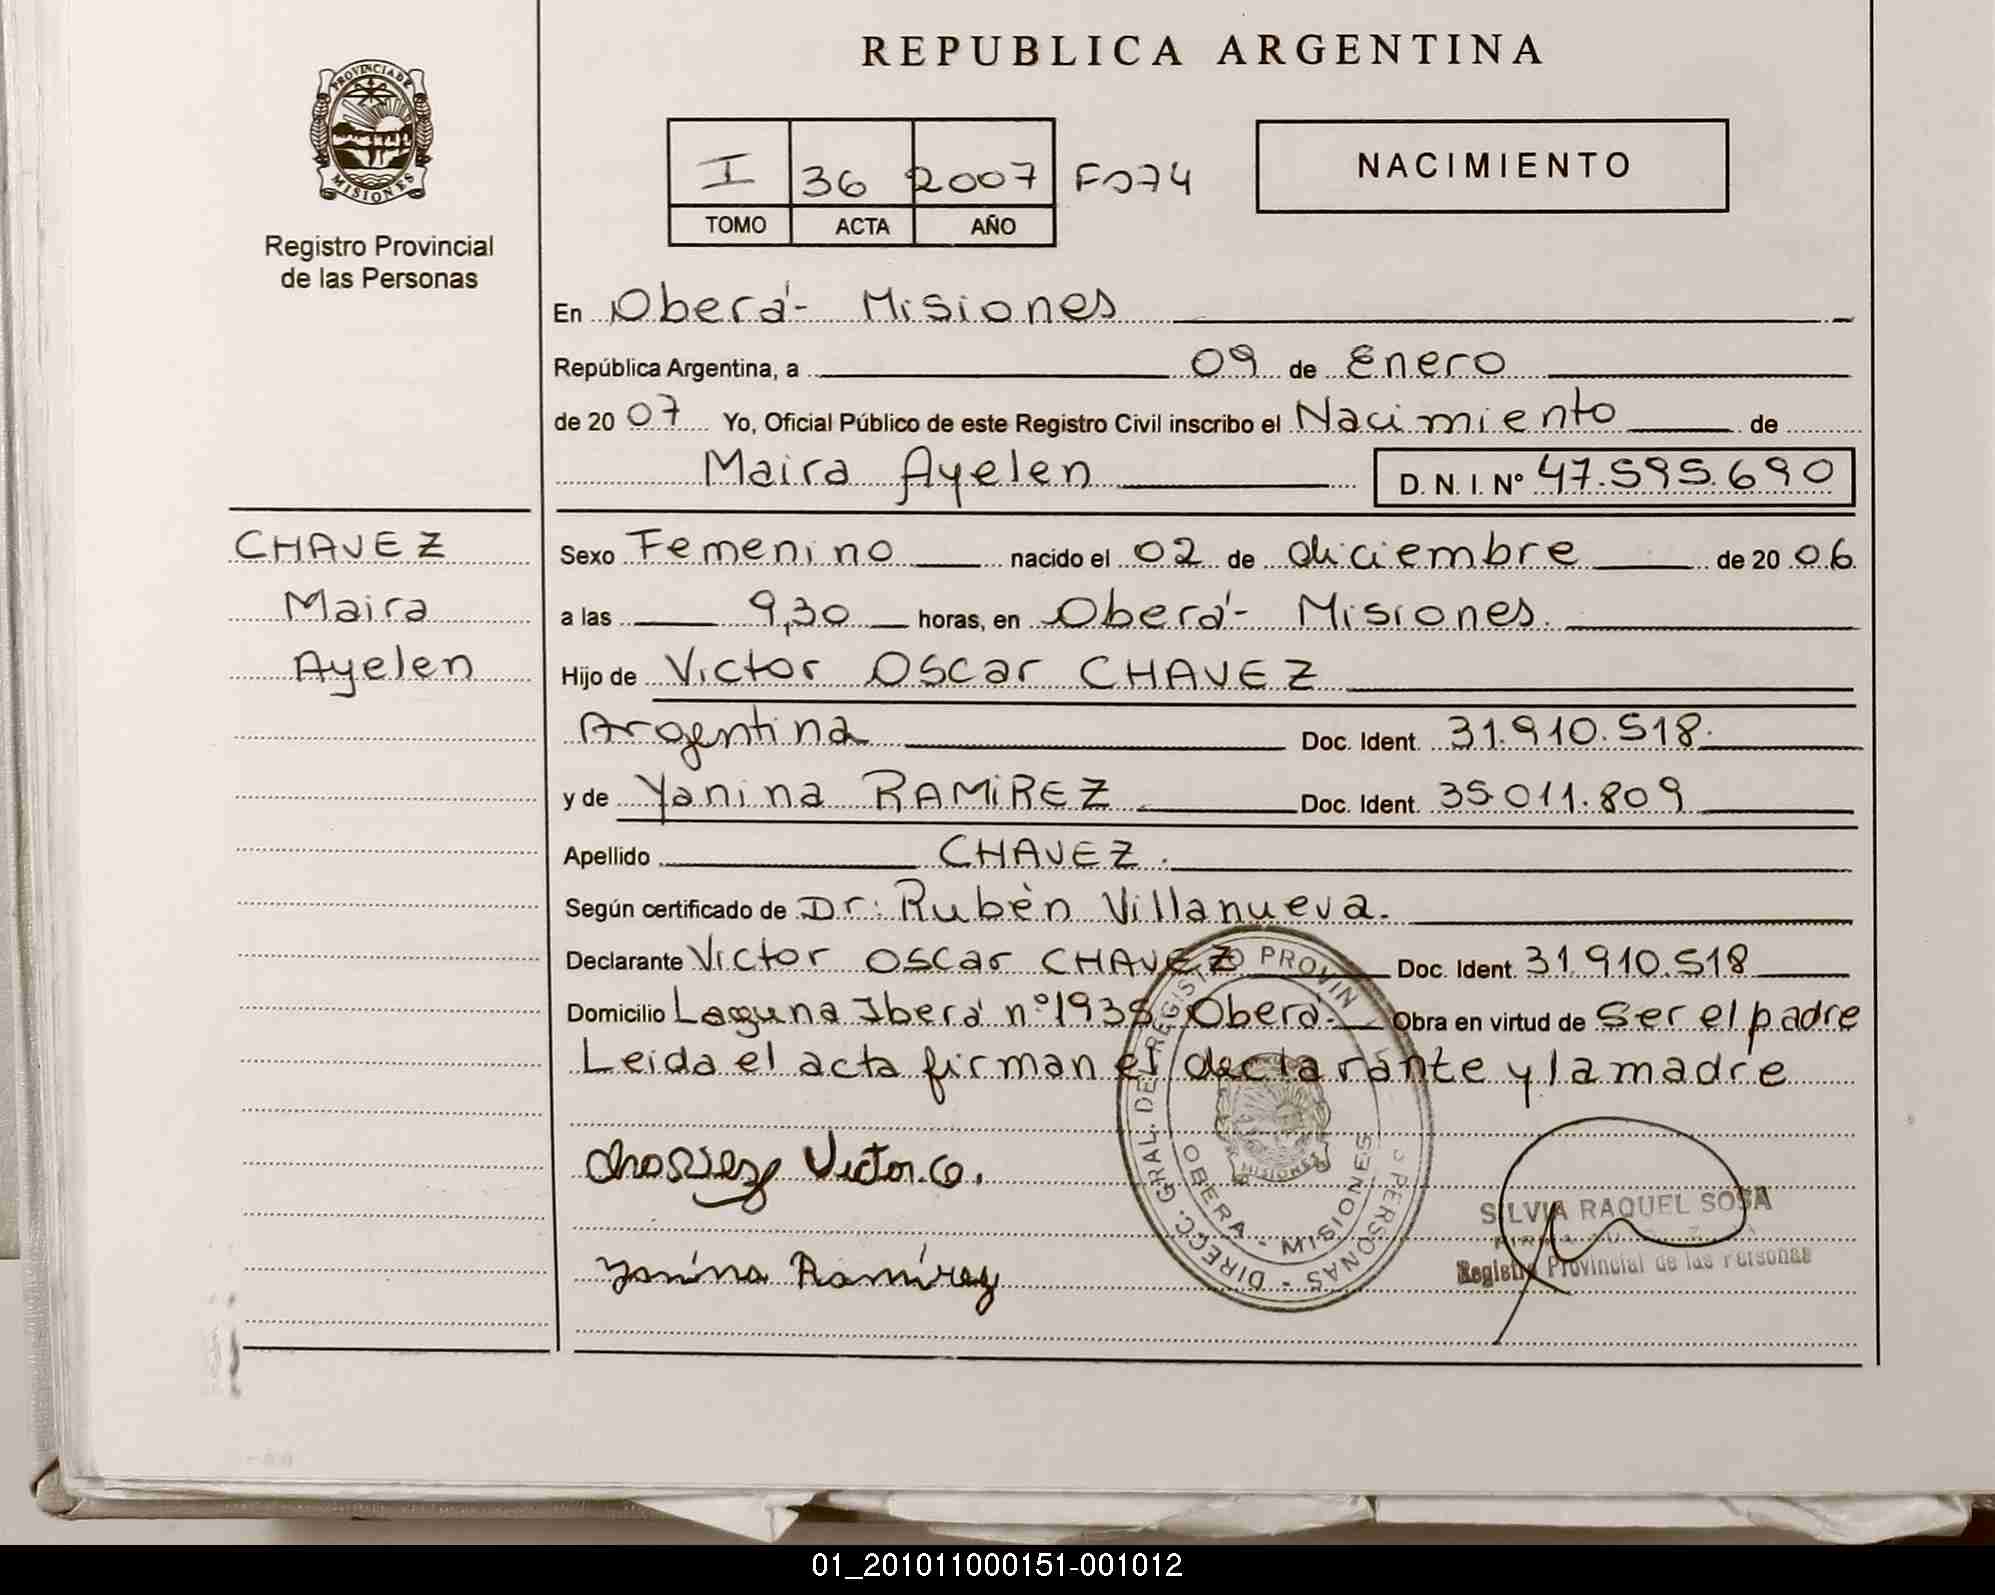 REPUBLICA ARGENTINA
PROVINCIA DE
MISIONES
Registro Provincial
de las Personas
I 36 2007 Fº 74
TOMO ACTA AÑO
NACIMIENTO
En Oberá - Misiones
República Argentina, a 09 de Enero
de 20 07 Yo, Oficial Público de este Registro Civil inscribo el Nacimiento de
Maira Ayelen D. N. I. Nº 47.595.690
CHAVEZ
Maira
Ayelen
Sexo Femenino nacido el 02 de diciembre de 20 06
a las 9,30 horas, en Oberá - Misiones.
Hijo de Victor Oscar CHAVEZ
Argentina Doc. Ident. 31.910.518.
y de Yanina RAMiREZ Doc. Ident. 35.011.809
Apellido CHAVEZ.
Según certificado de Dr: Rubèn Villanueva.
Declarante Victor Oscar CHAVEZ Doc. Ident. 31.910.518
Domicilio Laguna Iberá nº 1935 Oberá - Obra en virtud de Ser el padre
Leida el acta firman el declarante y la madre
Chavez Victor.O.
Yanina Ramírez
DIRECC. GRAL. DE REGISTRO PROVIN PERSONAS
OBERA - MISIONES
MISIONES
SILVIA RAQUEL SOSA
Registro Provincial de las Personas
01_201011000151-001012